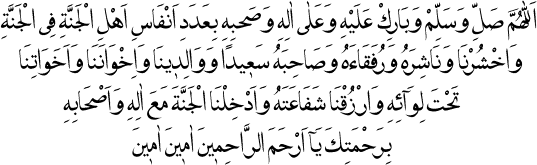 اَللّٰهُمَّ صَلِّ وَسَلِّمْ وَبَارِكْ عَلَيْهِ وَعَلٰى اٰلِهِ وَصَحْبِهِ بِعَدَدِ اَنْفَاسِ اَهْلِ الْجَنَّةِ فِى الْجَنَّةِ
وَاحْشُرْنَا وَنَاشِرَهُ وَرُفَقَاءَهُ وَصَاحِبَهُ سَعِيدًا وَوَالِدِينَا وَاِخْوَانَنَا وَاَخَوَاتِنَا
تَحْتَ لِوَٓائِهِ وَارْزُقْنَا شَفَاعَتَهُ وَاَدْخِلْنَا الْجَنَّةَ مَعَ اٰلِهِ وَاَصْحَابِهِ
بِرَحْمَتِكَ يَٓا اَرْحَمَ الرَّاحِمِينَ اٰمِينَ اٰمِينَ